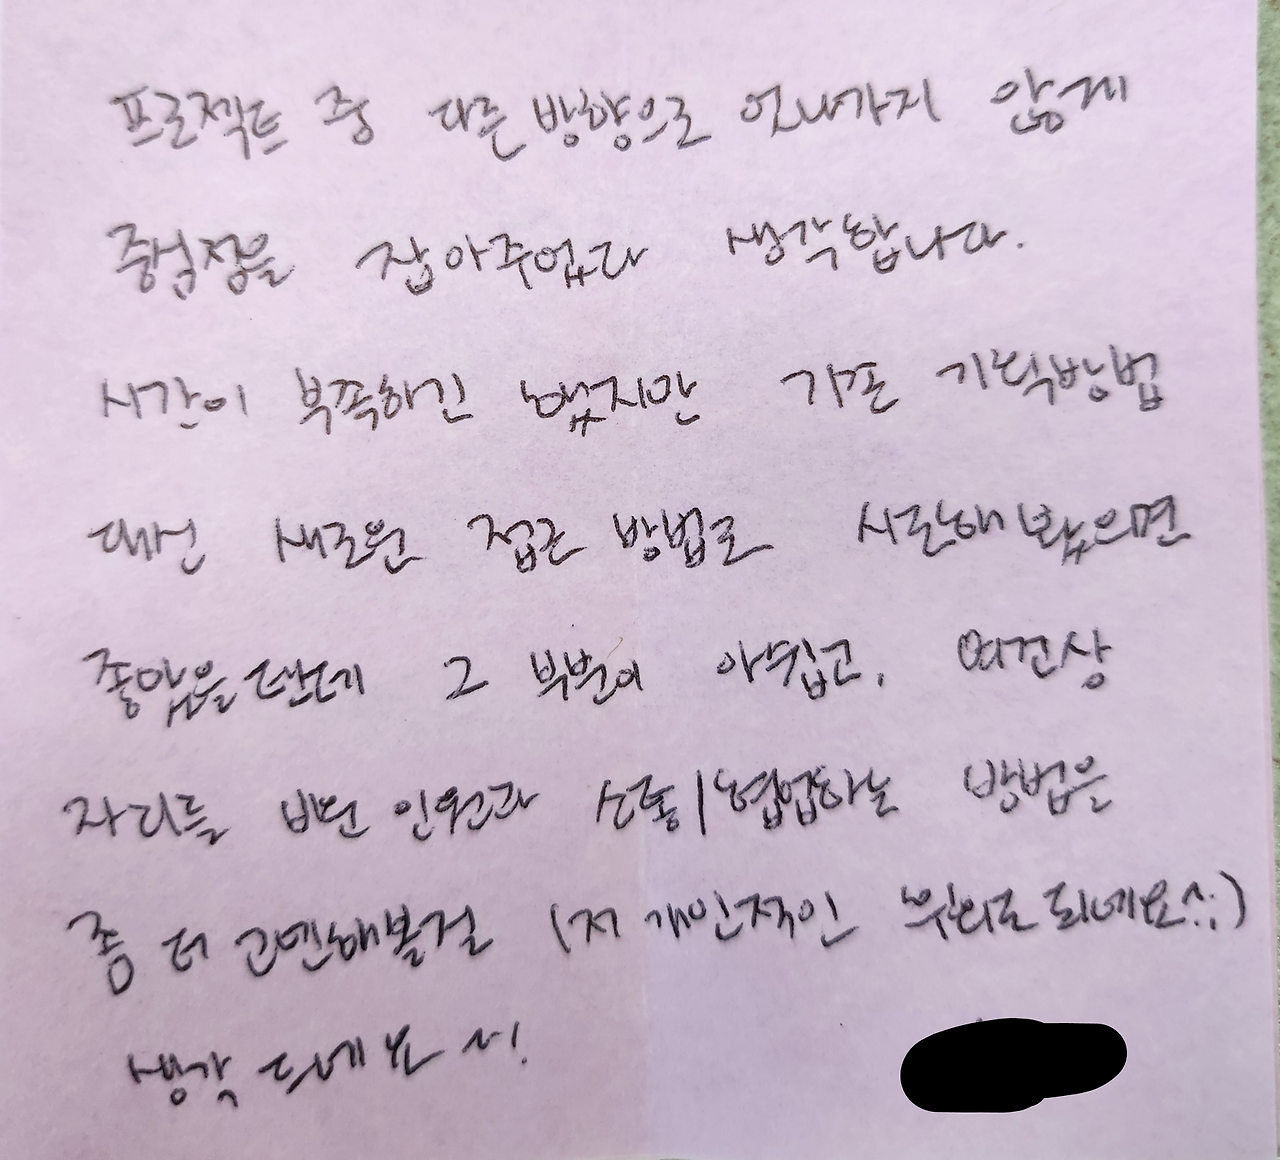 프로젝트 중 다른 방향으로 엇나가지 않게
중심점을 잡아주었다 생각합니다.
시간이 부족하긴 했지만 기존 기획방법
대신 새로운 접근 방법로 시도해봤으면
좋았을텐데 그 부분이 아쉽고, 여건상
자리를 비웠던 인원과 소통/협업하는 방법은
좀 더 고민해볼걸 (저 개인적인 후회도 되네요^;;)
생각 드네요 ㅆ!